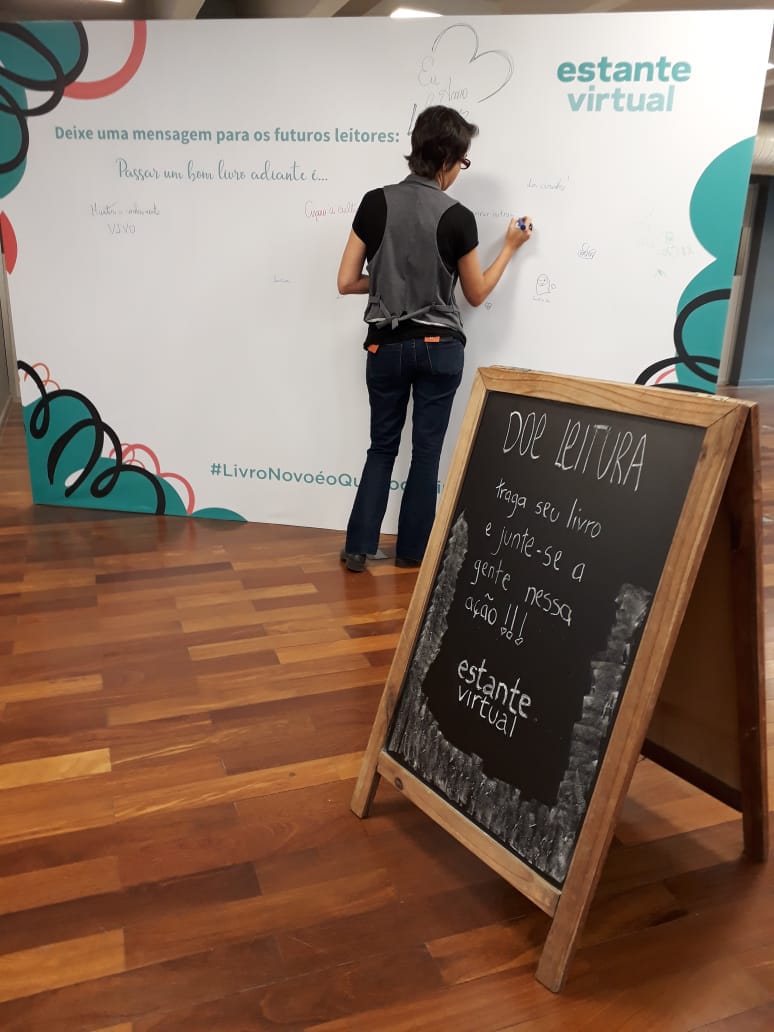 estante
virtual
Eu
Amo
Deixe uma mensagem para os futuros leitores:
Passar um bom livro adiante é...
VIVO
#LivroNovoéoQu
DOE LEITURA
traga seu livro
e junte-se a
gente nessa
ação!!!
estante
virtual